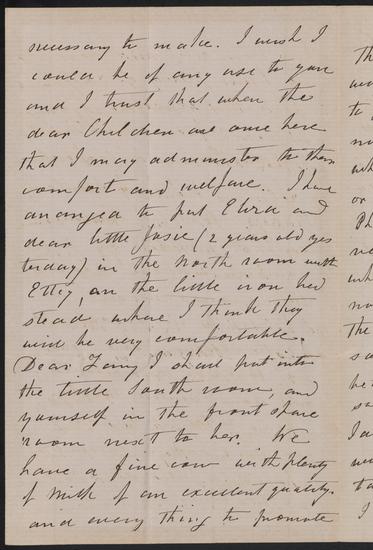 necessary to make. I wish I
could be of any use to you
and I trust that when the
dear Children are once here
that I may administer to their
comfort and welfare. I have
arranged to put and
dear little Josie (2 years old yes
terday) in the North room with
Etty, on the little iron bed
stead where I think they
will be very comfortable.
Dear I shall put into
the little South room, and
yourself in the front spare
room next to her. We
have a fine cow with plenty
of milk of an excellent quality.
and every thing to promote
Th
to
wh
or
Ph
wh
The
he
I